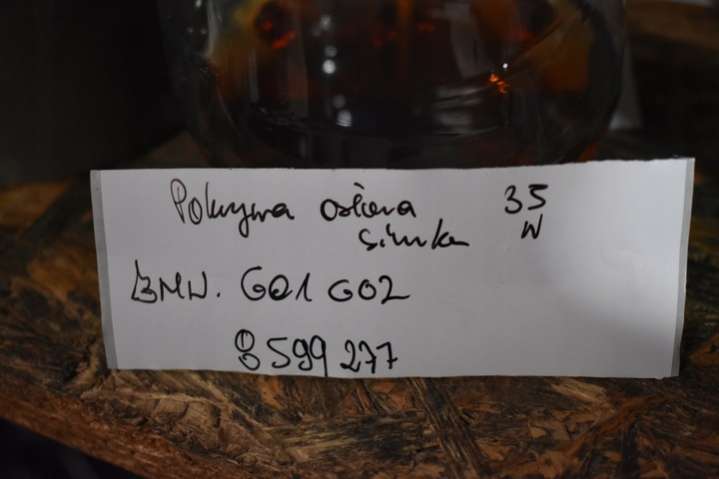 Pokrywa osłona 35
silnika W
BMW. G01 G02
8599277